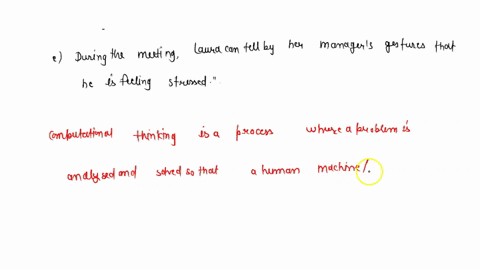 e) During the meeting, Laura can tell by her manager's gestures that
he is feeling stressed.".
Computational thinking is a process where a problem is
analysed and solved so that a human machine/.